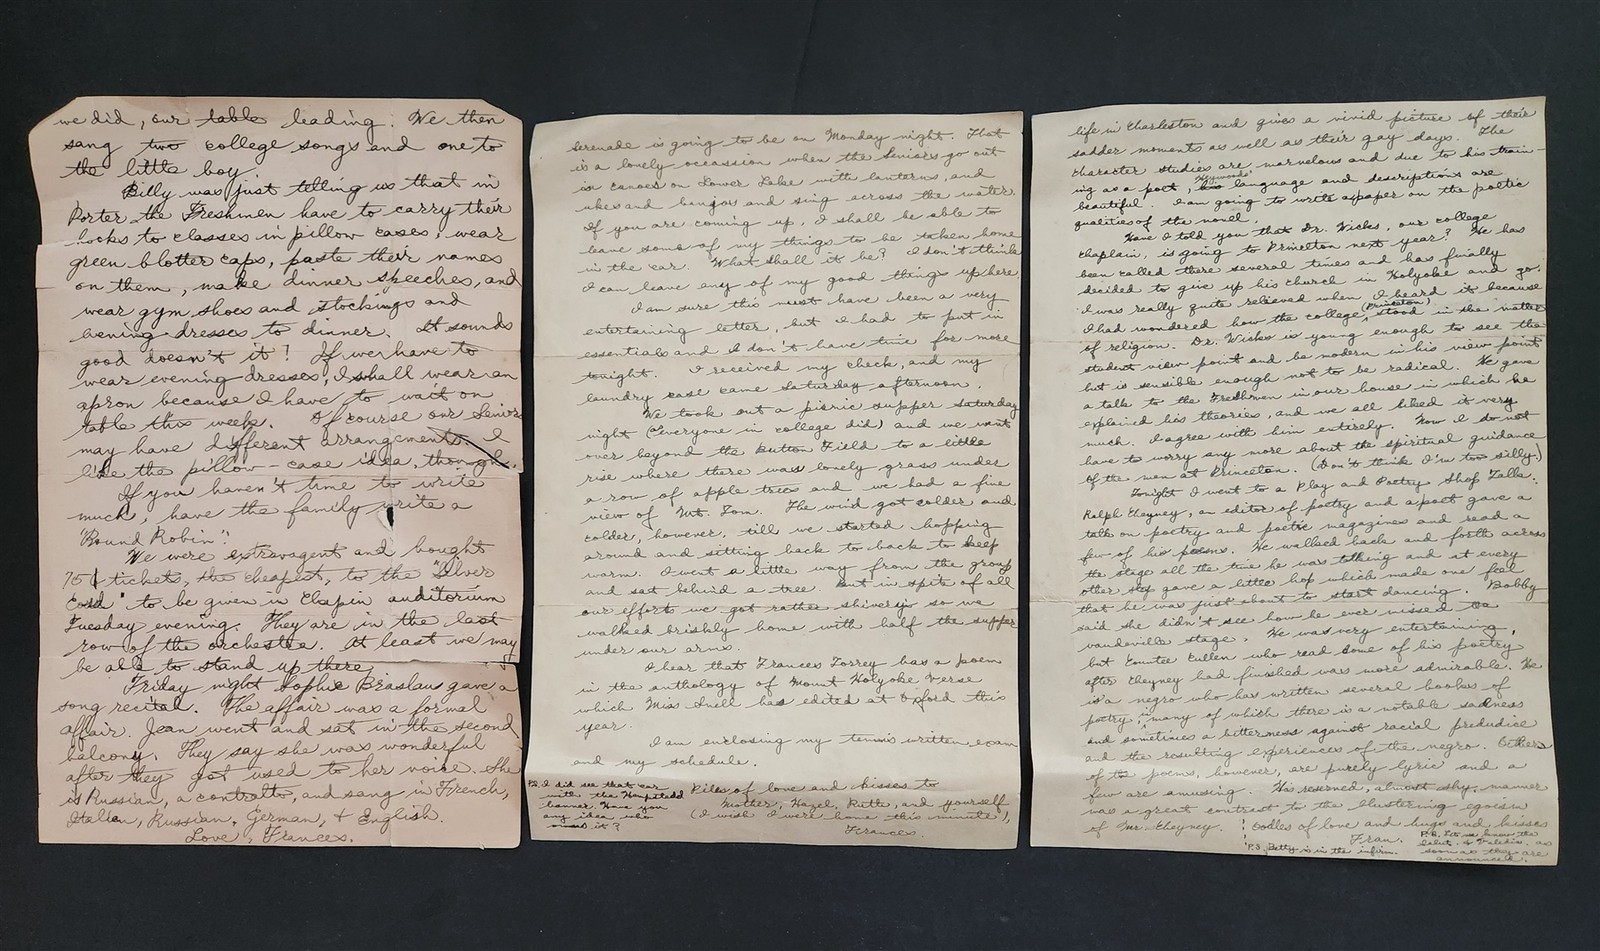 we did, our table leading. We then
sang two college songs and one to
the little boy.
Billy was just telling us that in
Porter the Freshmen have to carry their
books to classes in pillow cases, wear
green blotter caps, paste their names
on them, make dinner speeches, and
wear gym shoes and stockings and
evening dresses to dinner. It sounds
good doesn't it! If we have to
wear evening dresses, I shall wear an
apron because I have to wait on
table this week. Of course our Seniors
may have different arrangements. I
like the pillow-case idea, though.
If you haven't time to write
much, have the family write a
"Round Robin".
We were extravagent and bought
75¢ tickets, the cheapest, to the "Silver
Cord" to be given in Chapin auditorium
Tuesday evening. They are in the last
row of the orchestra. At least we may
be able to stand up there.
Friday night Sophie Braslau gave a
song recital. The affair was a formal
affair. Jean went and sat in the second
balcony. They say she was wonderful
after they got used to her voice. She
is Russian, a contralto, and sang in French,
Italian, Russian, German, & English.
Love, Frances.
serenade is going to be on Monday night. That
is a lovely occassion when the Seniors go out
in canoes on Lower Lake with lanterns, and
ukes and banjos and sing across the water.
If you are coming up, I shall be able to
leave some of my things to be taken home
in the car. What shall it be? I don't think
I can leave any of my good things up here.
I am sure this must have been a very
entertaining letter, but I had to put in
essentials and I don't have time for more
tonight. I received my check, and my
laundry case came Saturday afternoon.
We took out a picnic supper Saturday
night (everyone in college did) and we went
over beyond the Button Field to a little
rise where there was lovely grass under
a row of apple trees and we had a fine
view of Mt. Tom. The wind got colder and
colder, however, till we started hopping
around and sitting back to back to keep
warm. I went a little way from the group
and sat behind a tree. But in spite of all
our efforts we got rather shivery so we
walked briskly home with half the supper
under our arms.
I hear that Frances Torrey has a poem
in the anthology of Mount Holyoke Verse
which Miss Snell has edited at Oxford this
year.
I am enclosing my tennis written exam
and my schedule.
Piles of love and kisses to
Mother, Hazel, Ruth, and yourself
(I wish I were home this minute),
Frances.
P.S. I did see that car
with the Hempstead
banner. Have you
any idea who
owns it?
life in Charleston and gives a vivid picture of their
sadder moments as well as their gay days. The
character studies are marvelous and due to his train-
ing as a poet, Heywards' language and descriptions are
beautiful. I am going to write a paper on the poetic
qualities of the novel.
Have I told you that Dr. Wicks, our college
chaplain, is going to Princeton next year? He has
been called there several times and has finally
decided to give up his church in Holyoke and go.
I was really quite relieved when I heard it because
I had wondered how the college (Princeton) stood in the matter
of religion. Dr. Wicks is young enough to see the
student view point and be modern in his view point
but is sensible enough not to be radical. He gave
a talk to the Freshmen in our house in which he
explained his theories, and we all liked it very
much. I agree with him entirely. Now I do not
have to worry any more about the spiritual guidance
of the men at Princeton. (Don't think I'm too silly.)
Tonight I went to a Play and Poetry Shop Talk.
Ralph Cheyney, an editor of poetry and a poet gave a
talk on poetry and poetic magazines and read a
few of his poems. He walked back and forth across
the stage all the time he was talking and at every
other step gave a little hop which made one feel
that he was just about to start dancing. Bobby
said she didn't see how he ever missed
vaudeville stage. He was very entertaining,
but Countee Cullen who read some of his poetry
after Cheyney had finished was more admirable. He
is a negro who has written several books of
poetry in many of which there is a notable sadness
and sometimes a bitterness against racial predudice
and the resulting experiences of the negro. Others
of the poems, however, are purely lyric and a
few are amusing. His reserved, almost shy, manner
was a great contrast to the blustering egoism
of Mr. Cheyney. Oodles of love and hugs and kisses
Fran.
P.S. Betty is in the infirm.
P.S. Let me know the
Salut. & Valedic. as
soon as they are
announced.